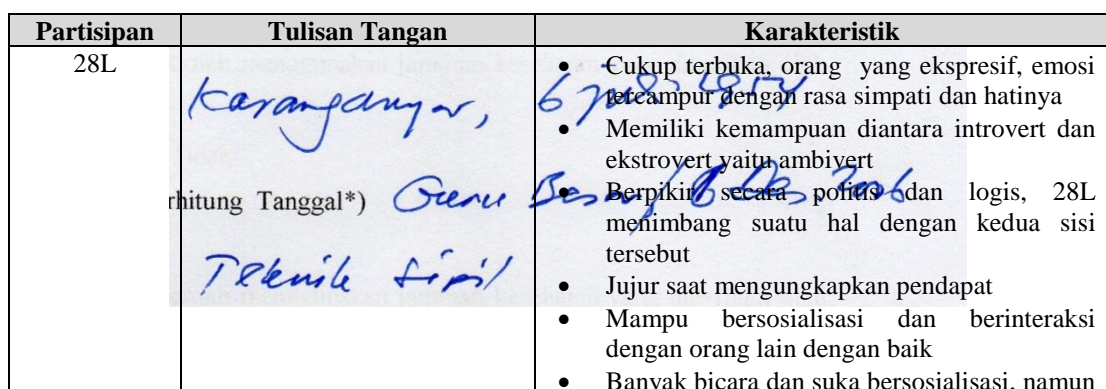 Partisipan Tulisan Tangan Karakteristik
28L
Karanganyar, 6
rhitung Tanggal*) Guru Besar/
Teknik Sipil
• Cukup terbuka, orang yang ekspresif, emosi
tercampur dengan rasa simpati dan hatinya
• Memiliki kemampuan diantara introvert dan
ekstrovert yaitu ambivert
• Berpikir secara politis dan logis, 28L
menimbang suatu hal dengan kedua sisi
tersebut
• Jujur saat mengungkapkan pendapat
• Mampu bersosialisasi dan berinteraksi
dengan orang lain dengan baik
• Banyak bicara dan suka bersosialisasi, namun